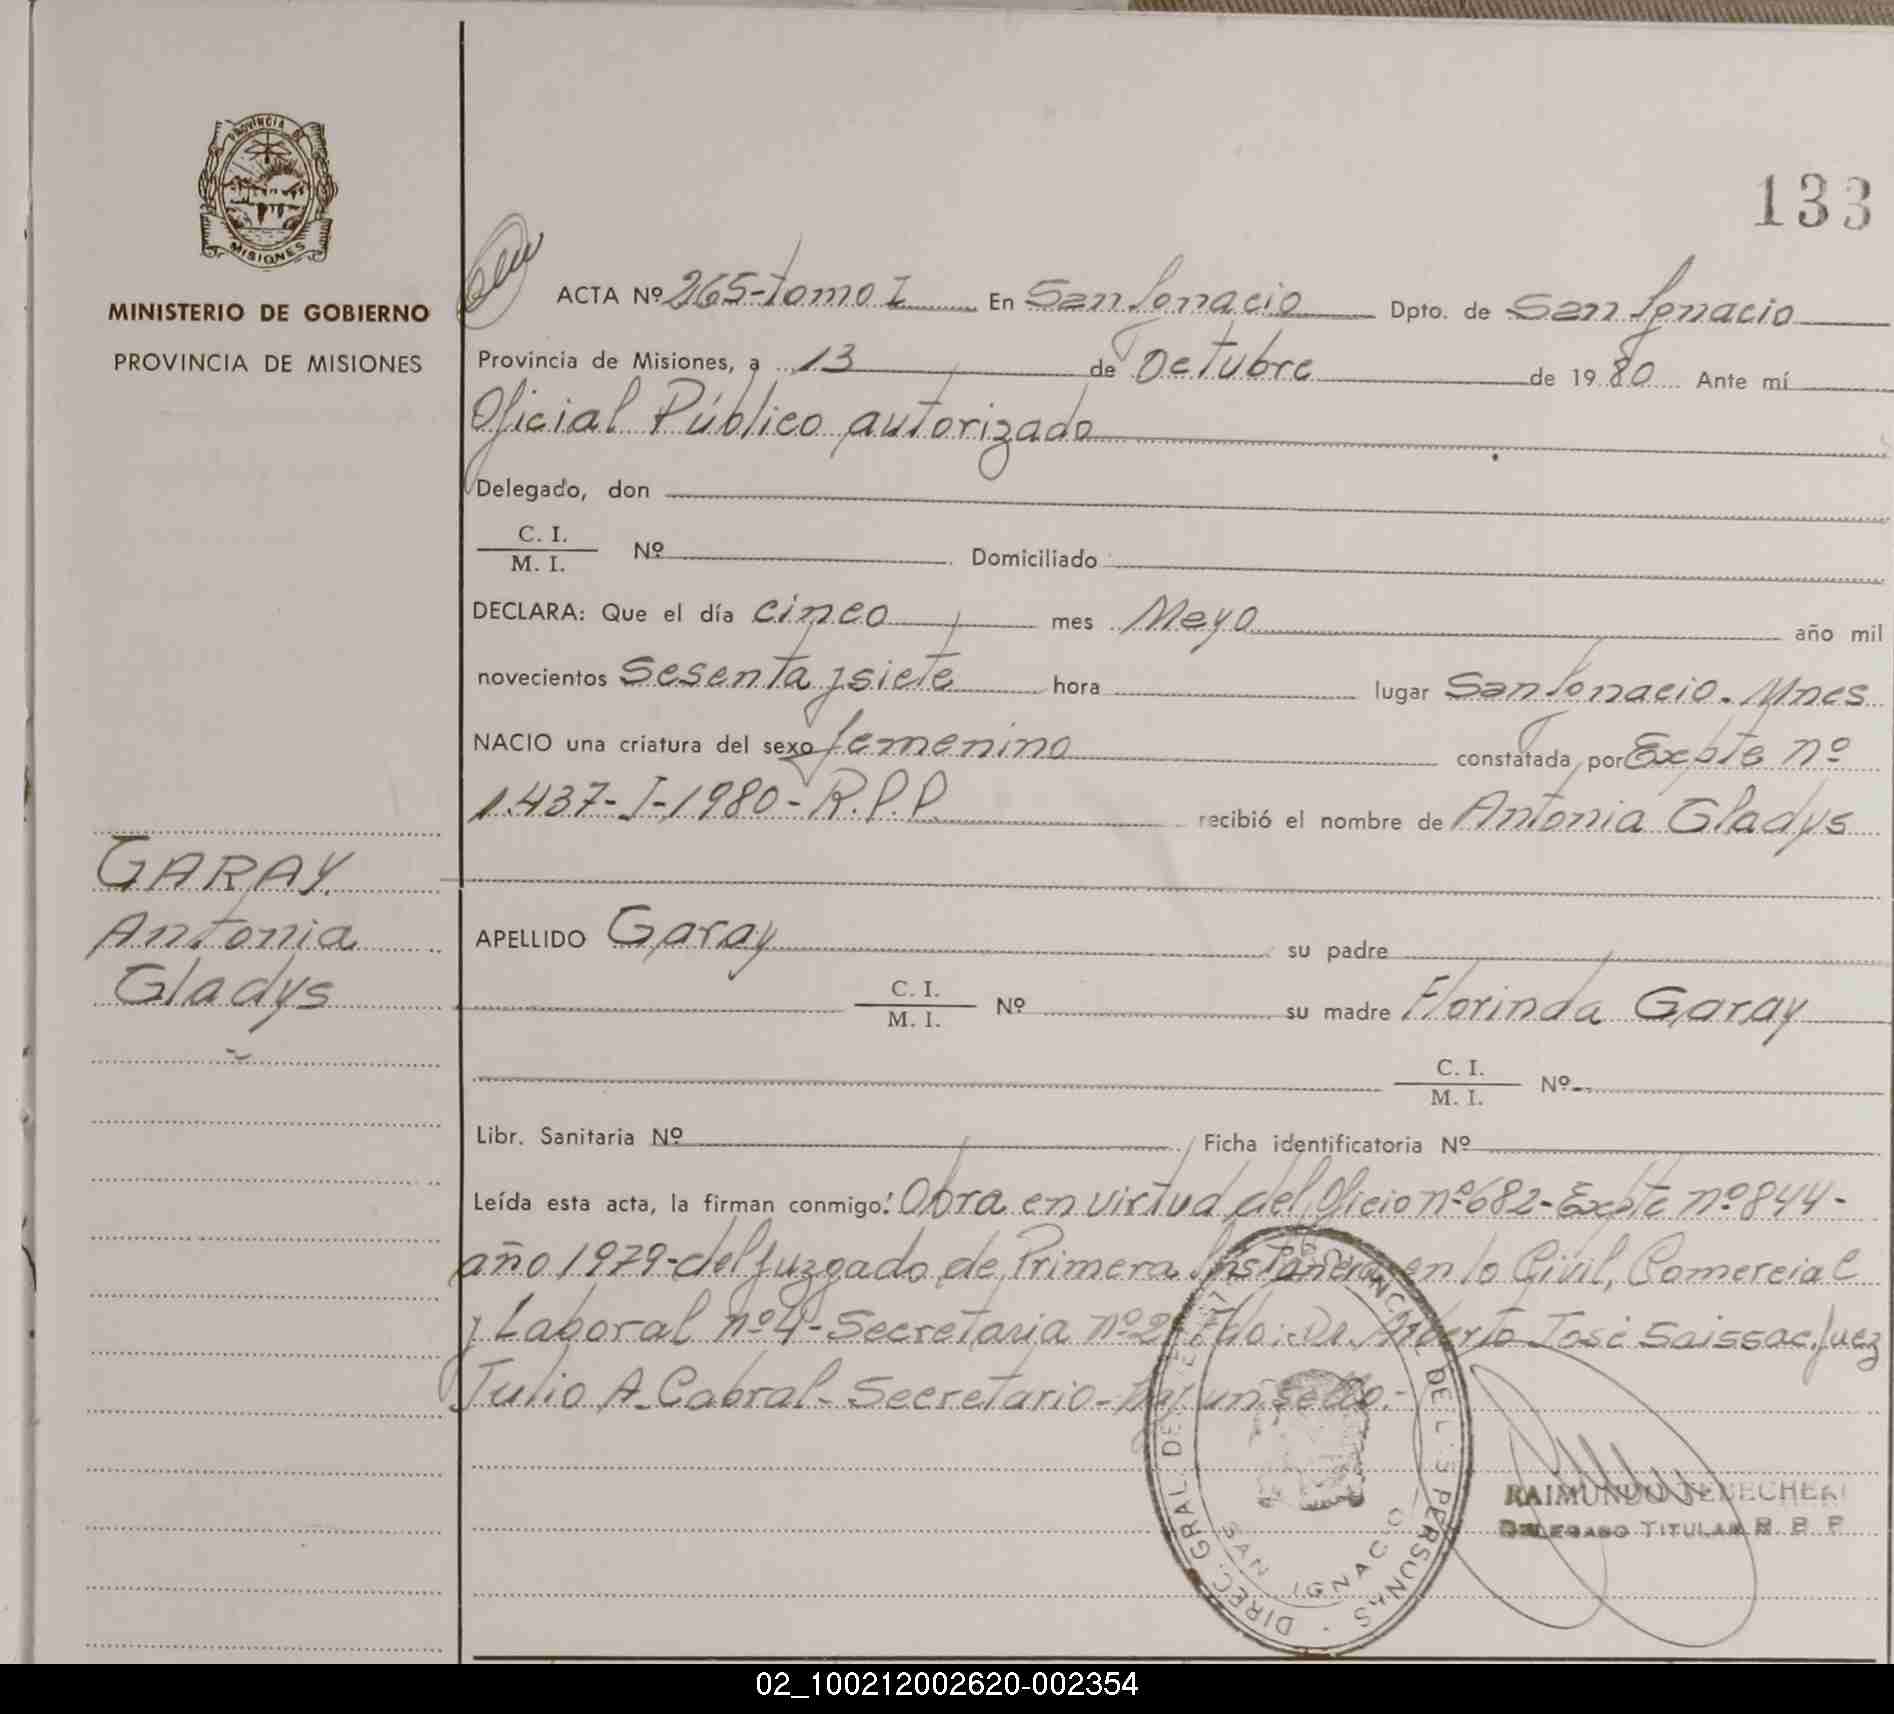 PROVINCIA DE
MISIONES
MINISTERIO DE GOBIERNO
PROVINCIA DE MISIONES
133
ACTA Nº 265-tomo I En San Ignacio Dpto. de San Ignacio
Provincia de Misiones, a 13 de Octubre de 1980 Ante mí
Oficial Público autorizado
Delegado, don
C. I.
M. I. Nº Domiciliado
DECLARA: Que el día cinco mes Mayo año mil
novecientos Sesenta y siete hora lugar San Ignacio. Mnes
NACIO una criatura del sexo femenino constatada por Expte nº
1.437-I-1980-R.P.P. recibió el nombre de Antonia Gladys
GARAY
Antonia
Gladys
APELLIDO Garay su padre
C. I.
M. I. Nº su madre Florinda Garay
C. I.
M. I. Nº
Libr. Sanitaria Nº Ficha identificatoria Nº
Leída esta acta, la firman conmigo: Obra en virtud del Oficio nº 682-Expte nº 844-
año 1979-del Juzgado de Primera Instancia en lo Civil, Comercial
y Laboral nº 4-Secretaria nº 2 Fdo: Dr. Alberto José Saissac. Juez
Julio A. Cabral-Secretario-Hay un sello.-
DIREC. GRAL DE PROVINCIAL DE LAS PERSONAS
SAN IGNACIO
RAIMUNDO
DELEGADO TITULAR R. P. P.
02_100212002620-002354